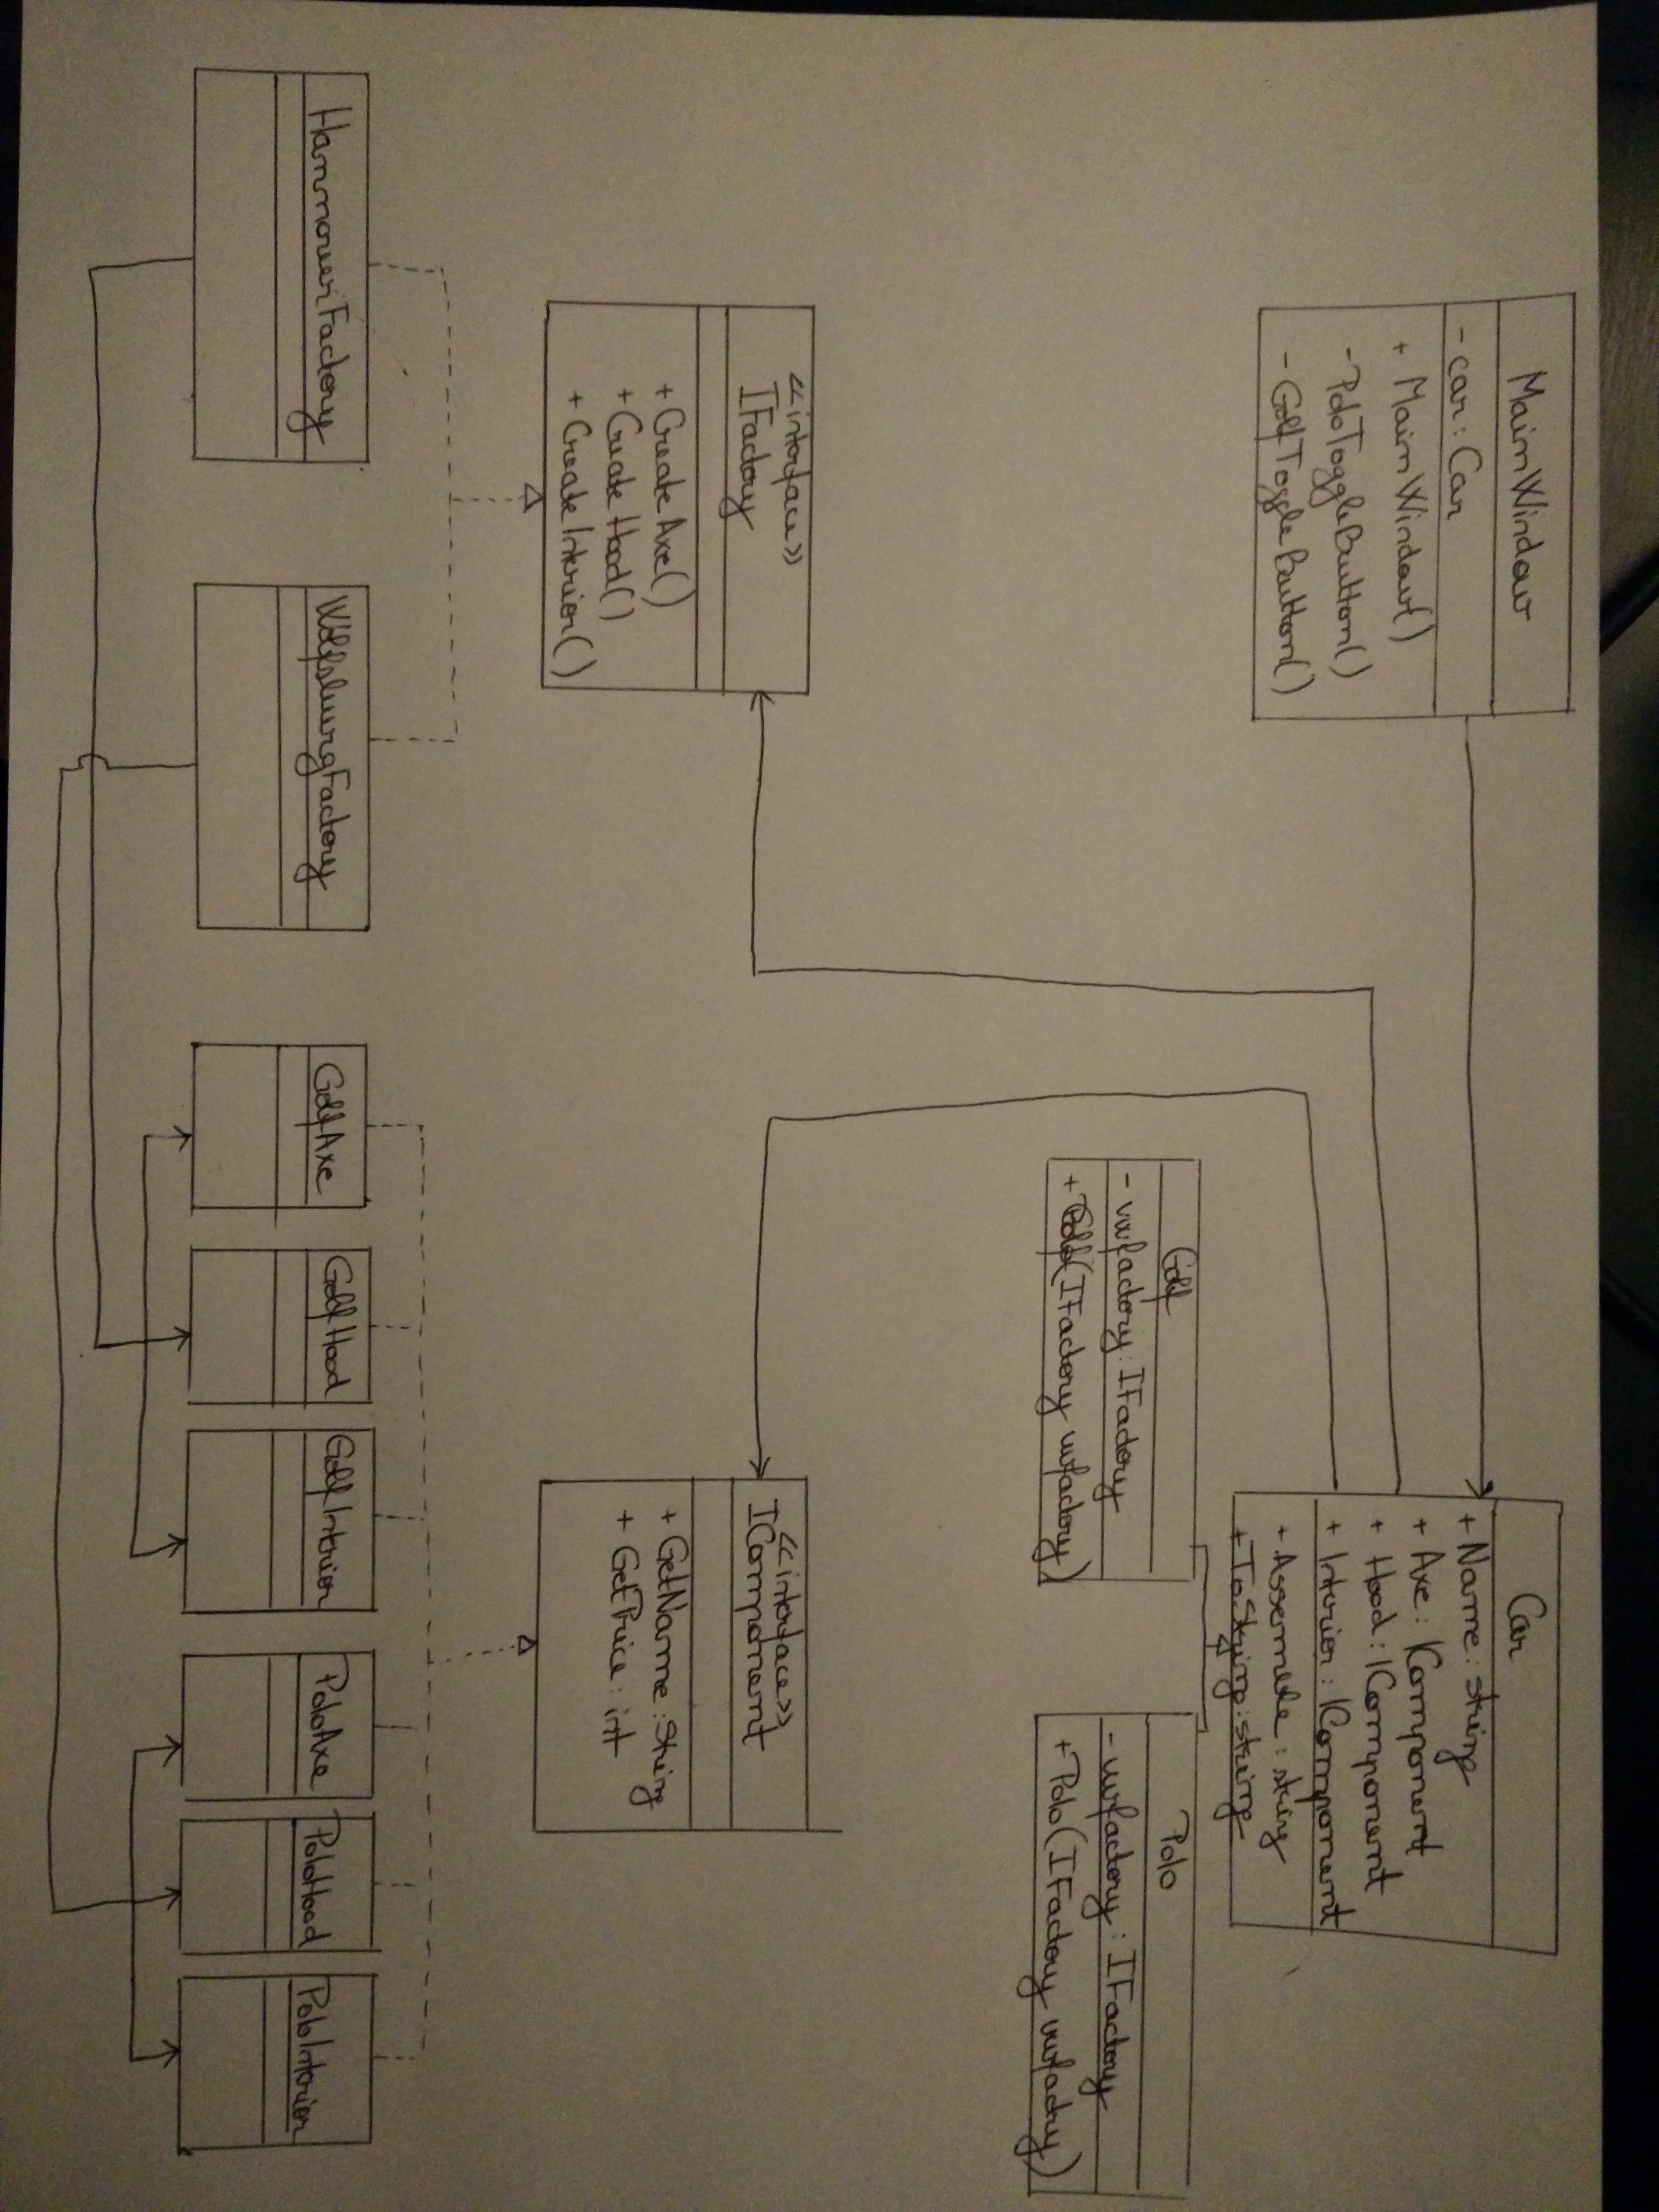 MainWindow
- car: Car
+ MainWindow()
- PoloToggleButton()
- GolfToggleButton()
Car
+ Name: string
+ Axe: IComponent
+ Hood: IComponent
+ Interior: IComponent
+ Assemble: string
+ ToString: string
Golf
- vwfactory: IFactory
+ Golf(IFactory vwfactory)
Polo
- vwfactory: IFactory
+ Polo(IFactory vwfactory)
<<interface>>
IFactory
+ CreateAxe()
+ CreateHood()
+ CreateInterior()
<<interface>>
IComponent
+ GetName: String
+ GetPrice: int
HannoverFactory
WolfsburgFactory
GolfAxe
GolfHood
GolfInterior
PoloAxe
PoloHood
PoloInterior